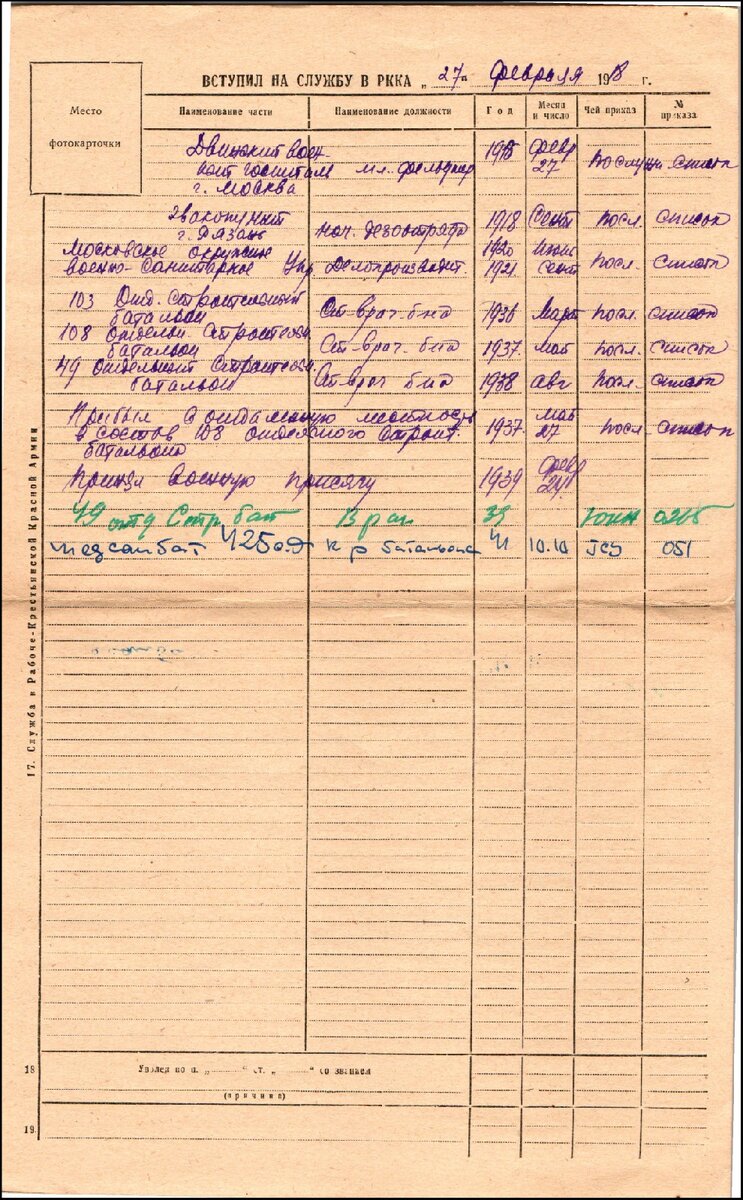 ВСТУПИЛ НА СЛУЖБУ В РККА „27" февраля 1918 г.
Место
фотокарточки
Наименование части Наименование должности Год Месяц и число Чей приказ № приказа
Двинский воен-
ный госпиталь мл. фельдшер 1918 февр 27 Послужн. список
г. Москва
Эвакопункт
г. Рязань нач. дезотряда 1918 Сент посл. список
Московское окружное 1920 Июнь
военно-санитарное Упр. Делопроизводит. 1921 сент посл. список
103 Отд. строительный
батальон Ст-врач. б-на 1936 Март посл. список
108 отдельн. Строительн.
батальон Ст-врач. б-на 1937 май посл. список
49 отдельный Строительн.
батальон Ст-врач б-на 1938 авг посл. список
Прибыл в отдаленную местность
в состав 108 отдельного строит. 1937 май 27 посл. список
батальона
Принял военную присягу 1939 февр 24
49 отд Стр. бат Врач 39 0265
медсанбат 425 с.д к-р батальона 41 10.10 051
17. Служба в Рабоче-Крестьянской Красной Армии
18 Уволен по п. „ " ст. „ " со званием
(причина)
19